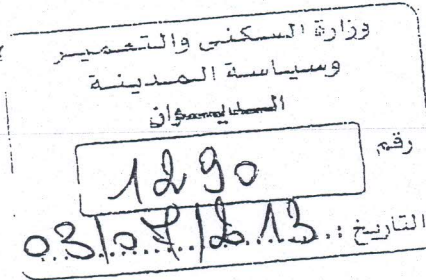 وزارة السكنى والتعمير
وسياسة المدينة
الديوان
رقم
1290
التاريخ : 03/07/2013